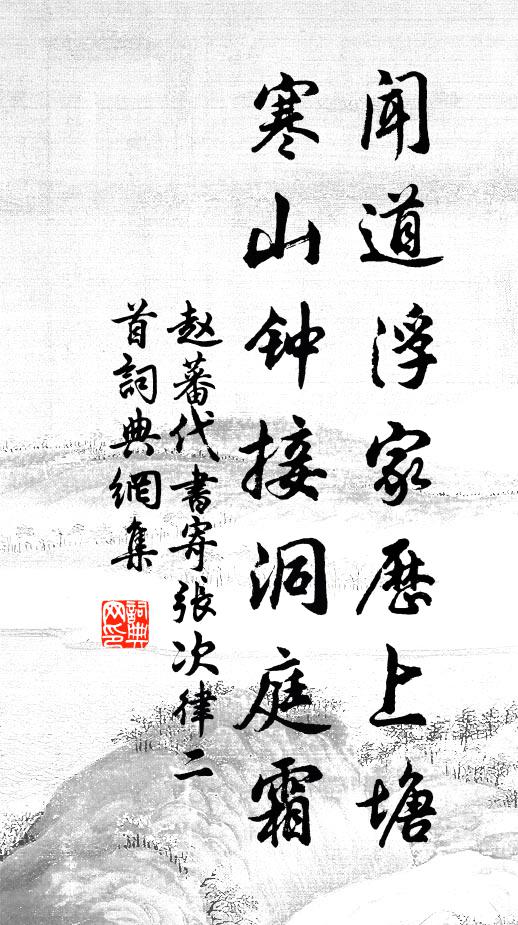 闻道浮家歷上塘
寒山钟接洞庭霜
赵蕃代书寄张次律二
首词典網集
詞典网印